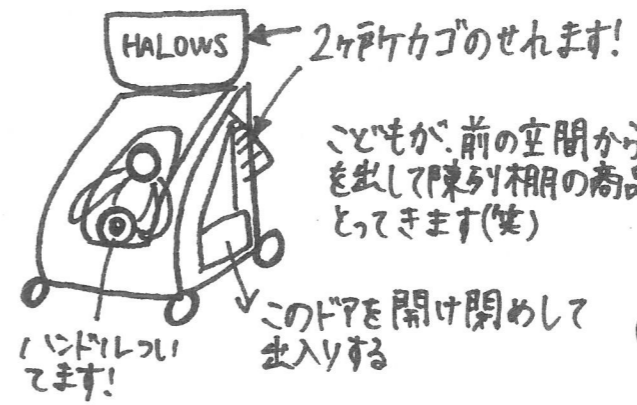 HALOWS
2ヶ所カゴのせれます!
こどもが、前の空間から
を出して陳列棚の商品
とってきます(笑)
このドアを開け閉めして
出入りする
ハンドルつい
てます!